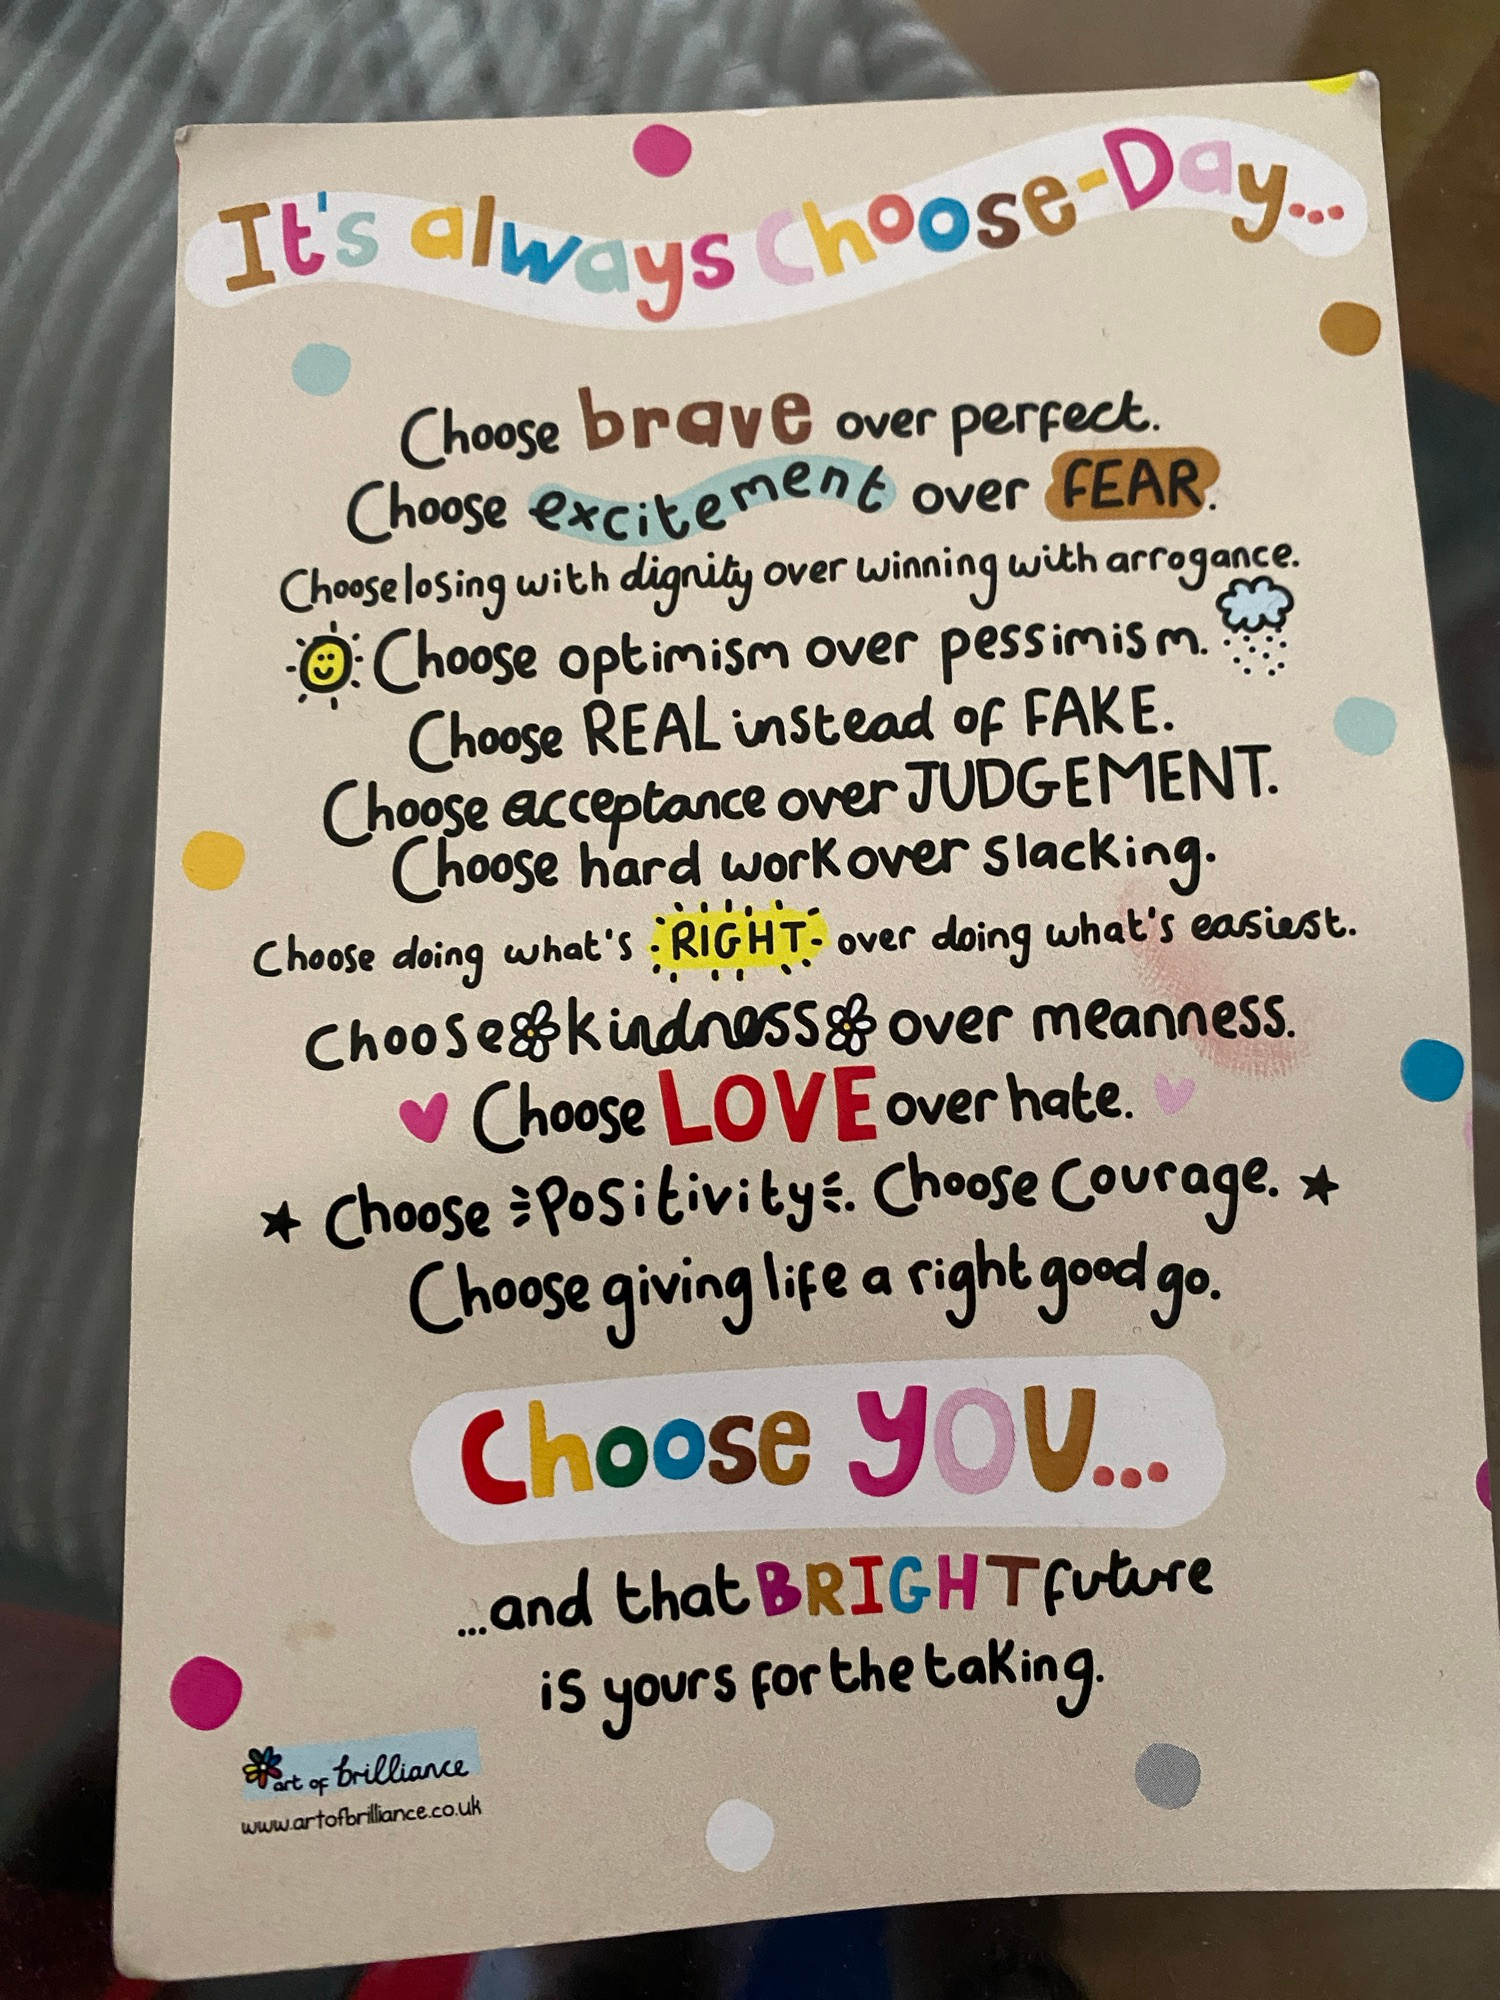 It's always Choose-Day...
Choose brave over perfect.
Choose excitement over FEAR.
Choose losing with dignity over winning with arrogance.
Choose optimism over pessimism.
Choose REAL instead of FAKE.
Choose acceptance over JUDGEMENT.
Choose hard work over slacking.
Choose doing what's RIGHT over doing what's easiest.
Choose kindness over meanness.
Choose LOVE over hate.
Choose Positivity. Choose Courage.
Choose giving life a right good go.
Choose YOU...
...and that BRIGHT future
is yours for the taking.
art of brilliance
www.artofbrilliance.co.uk